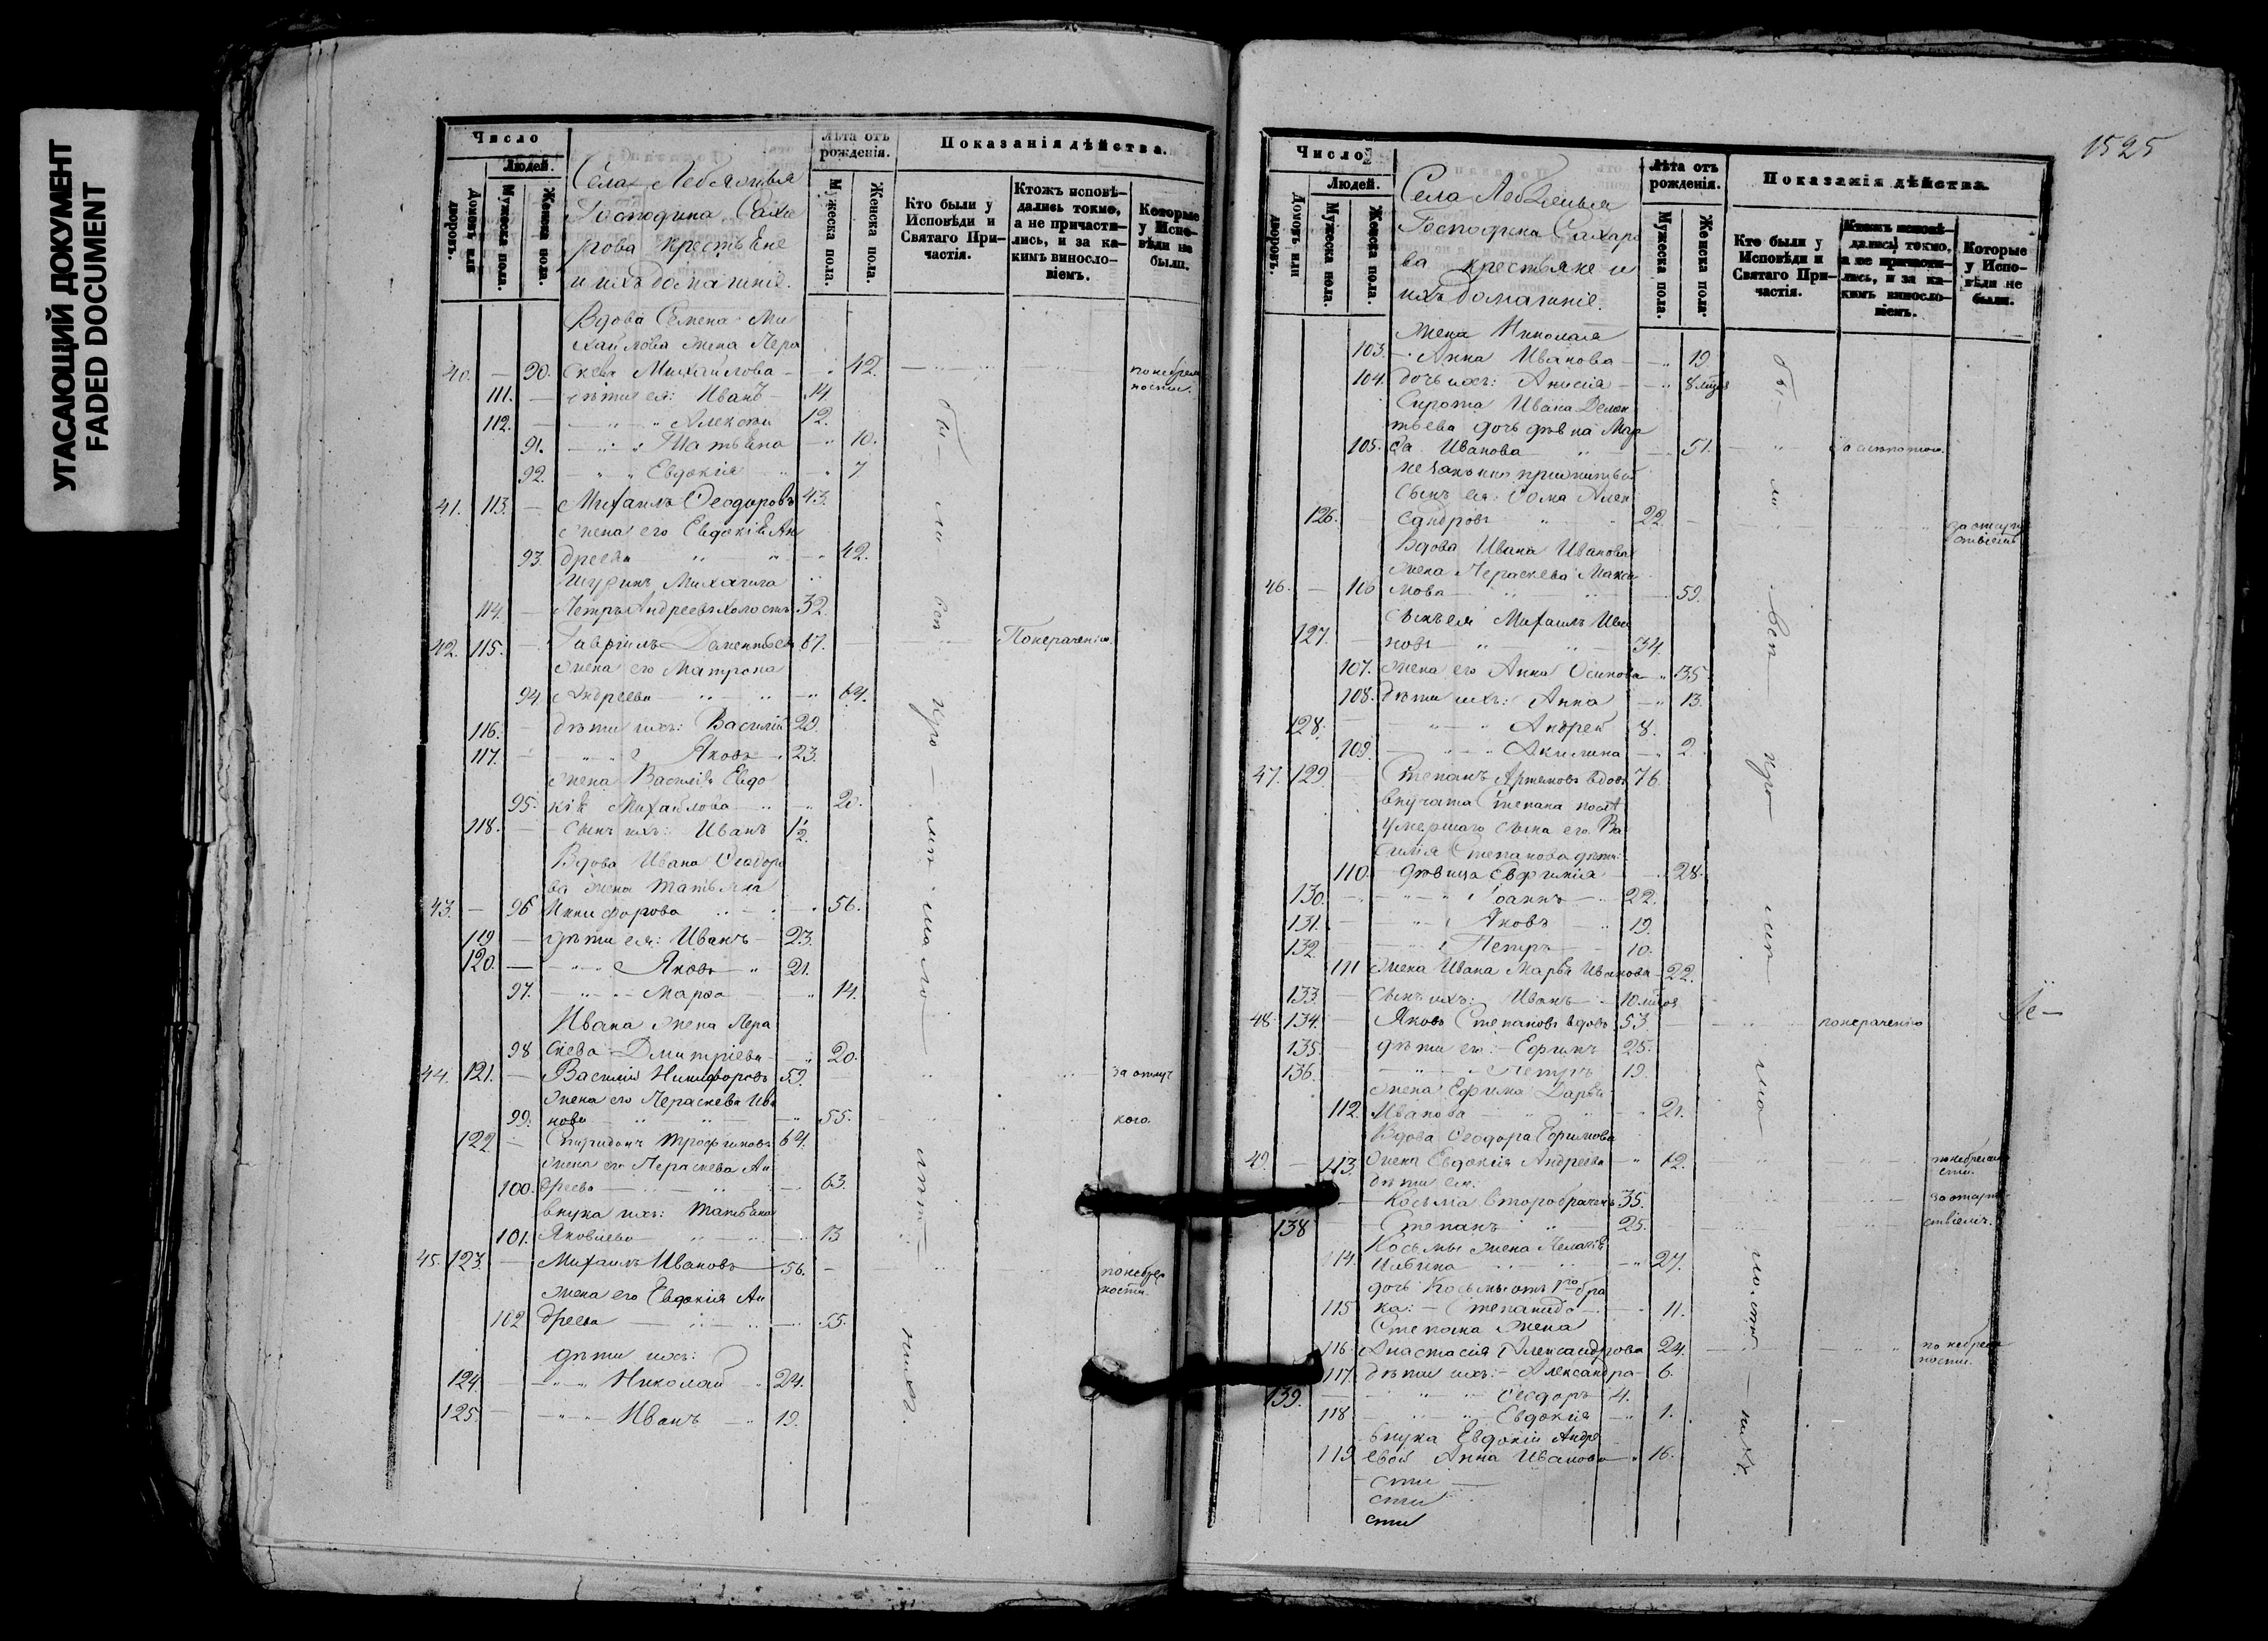 УГАСАЮЩИЙ ДОКУМЕНТ
FADED DOCUMENT
Число
Людей.
Домовъ или дворовъ.
Мужеска пола.
Женска пола.
Села Лебяжья
Господина Саха
рова крестьяне
и ихъ домашніе.
Лѣта отъ
рожденія.
Мужеска пола.
Женска пола.
Показанія дѣйства.
Кто были у
Исповѣди и
Святаго При-
частія.
Ктожъ исповѣ-
дались токмо,
а не причасти-
лись, и за ка-
кимъ винословіемъ.
Которые
у Испо-
вѣди не
были.
Вдова Семена Ми
хайлова жена Пера
40. — 90. скева Михайлова — 42.
111. — дѣти ея: Иванъ — 14.
112. — Алексѣй 12.
91. — Татьяна — 10.
92. — Евдокія — 7
41. 113. — Михаилъ Ѳеодоровъ 43.
жена его Евдокія Ан
93. дреева — 42.
шуринъ Михаила
114. — Петръ Андреевъ холостъ 32.
42. 115. — Гавріилъ Дементьевъ 67. Понераченію.
жена его Матрона
94 Андреева — 64.
116. — дѣти ихъ: Василій 29.
117. Яковъ 23.
жена Василія Евдо
95. кія Михайлова — 20.
118. — сынъ ихъ: Иванъ 1/2.
Вдова Ивана Ѳеодоро
ва жена Татьяна
43. — 96 Никифорова — 56.
119 — дѣти ея: Иванъ — 23.
120. — Яковъ 21.
97. — Марѳа — 14.
Ивана жена Пера
98 скева Дмитріева — 20.
44. 121. — Василій Никифоровъ 59. за отлуч
жена его Пераскева Ива
99. нова — 55. кого.
122 — Спиридонъ Трофимовъ 64.
жена его Пераскева Ан
100. дреева — 63.
внука ихъ: Татьяна
101. Яковлева — 13
45. 123. — Михаилъ Ивановъ 56. —
жена его Евдокія Ан
102 дреева — 55.
дѣти ихъ:
124. — Николай 24.
125. — Иванъ — 19.
1525
Число
Людей.
Домовъ или дворовъ.
Мужеска пола.
Женска пола.
Села Лебяжья
Господина Сахаро
ва крестьяне и
ихъ домашніе.
Лѣта отъ
рожденія.
Мужеска пола.
Женска пола.
Показанія дѣйства.
Кто были у
Исповѣди и
Святаго При-
частія.
Ктожъ исповѣ-
дались токмо,
а не причасти-
лись, и за ка-
кимъ винословіемъ.
Которые
у Испо-
вѣди не
были.
жена Николая
103. Анна Иванова — 19.
104. дочь ихъ: Анисія —
Сирота Ивана Демен
тьева дочь дѣвка Мар
105. ѳа Иванова — 51.
незаконноприжитый
сынъ ея: Ѳома Алек
126. сандровъ 22.
Вдова Ивана Иванова
жена Пераскева Макси
46. — 106 мова — 59.
сынъ ея Михаилъ Ива
127. — новъ — 34.
107. жена его Анна Осипова — 35
108. дѣти ихъ: Анна — 13.
128. — Андрей 8.
109. — Акилина — 2.
47. 129. — Степанъ Артемовъ вдовъ 76.
внучата Степана послѣ
умершаго сына его Ва
силія Степанова дѣти:
110. дѣвица Евфимія — 28.
130. — Іоаннъ — 22.
131. — Яковъ 19.
132. Петръ — 10.
111 жена Ивана Марья Иванова 22.
133. — сынъ ихъ: Иванъ — 10 мѣсяц
48. 134. — Яковъ Степановъ вдовъ 53. понераченію
135. — дѣти его: Ефимъ 25.
136. — Петръ 19.
жена Ефима Дарья
112. Иванова — 21.
Вдова Ѳеодора Ефимова
49. — 113. жена Евдокія Андреева
дѣти ея:
— Косьма второбрачн. 35.
138 — Степанъ 25.
Косьмы жена Пелагія
114. — 27.
дочь Косьмы отъ 1го бра
115 ка: — Степанида — 11.
Степана жена
116. Анастасія Александрова 24.
117. дѣти ихъ: Александра 6.
139. — Ѳеодоръ 4.
118 — Евдокія 1.
внука Евдокіи Андре
119 евой Анна Иванова 16.